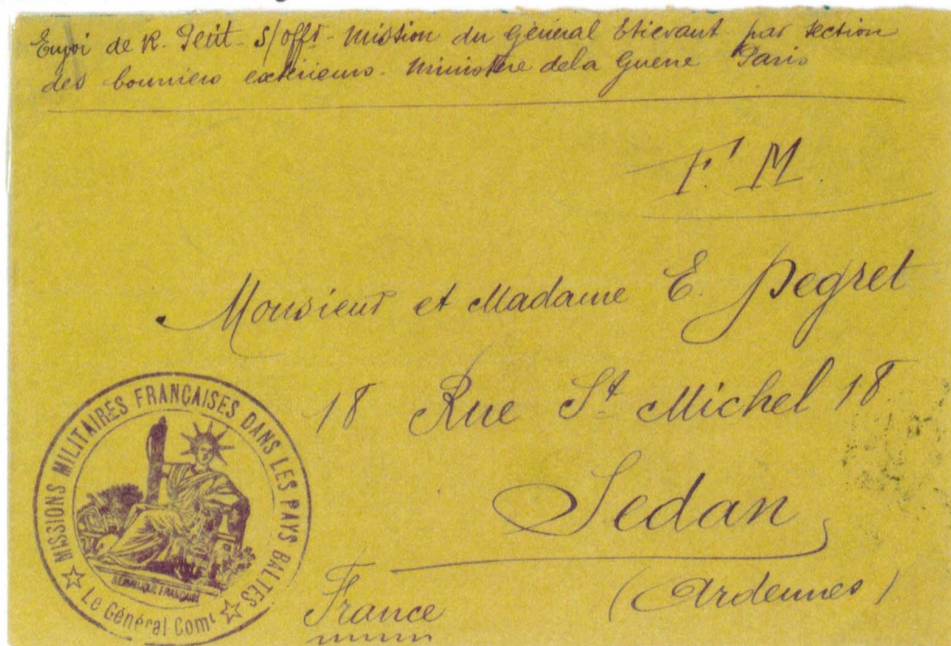 Envoi de R. Petit - S/offr - Mission du Général Etievant par section
des courriers extérieurs - Ministère de la Guerre Paris
F. M.
Monsieur et Madame E. Pegret
18 Rue St Michel 18
Sedan
(Ardennes)
France
MISSIONS MILITAIRES FRANÇAISES DANS LES PAYS BALTES
RÉPUBLIQUE FRANÇAISE
Le Général Comt